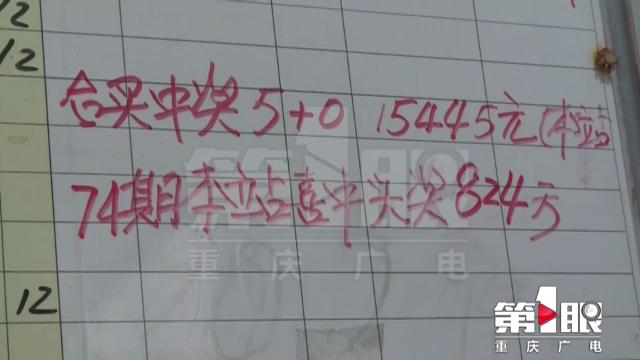 12
12
合买中奖5+0 15445元(本站
74期本站喜中头奖824万
12
第1眼
重庆广电
第1眼
重庆广电